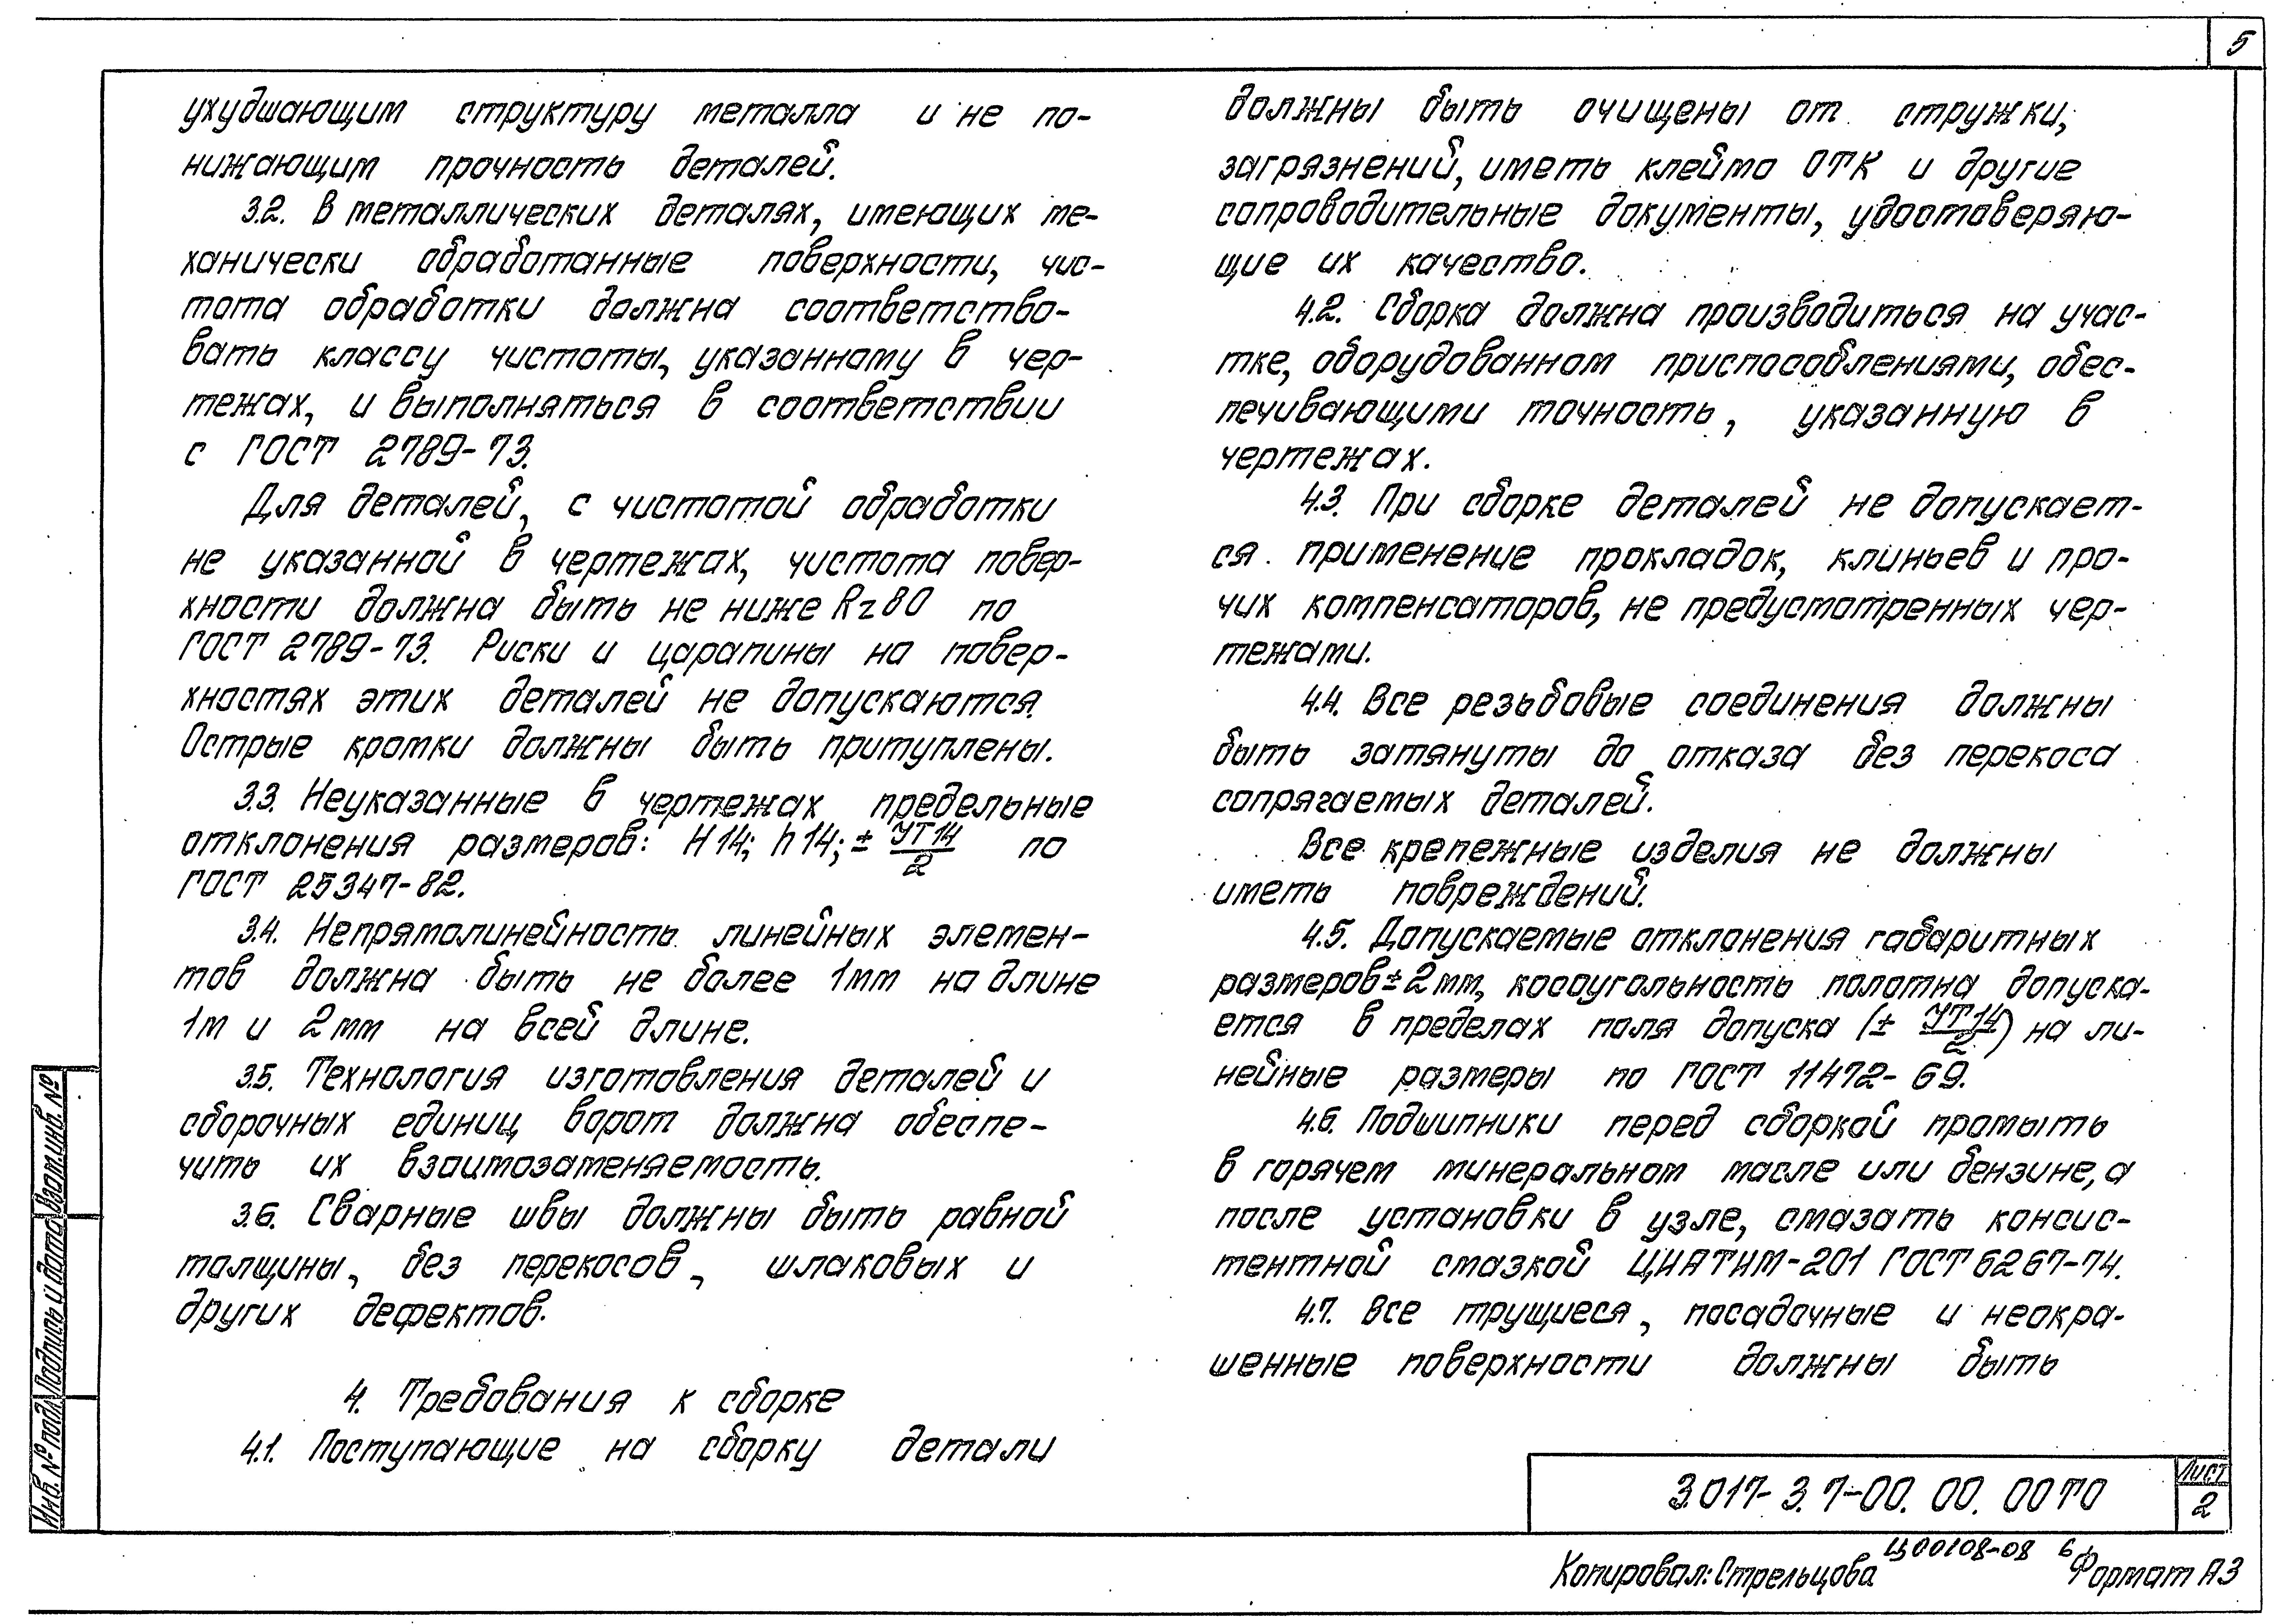 5
ухудшающим структуру металла и не по-
нижающим прочность деталей.
3.2. В металлических деталях, имеющих ме-
ханически обработанные поверхности, чис-
тота обработки должна соответство-
вать классу чистоты, указанному в чер-
тежах, и выполняться в соответствии
с ГОСТ 2789-73.
Для деталей, с чистотой обработки
не указанной в чертежах, чистота повер-
хности должна быть не ниже Rz80 по
ГОСТ 2789-73. Риски и царапины на повер-
хностях этих деталей не допускаются.
Острые кромки должны быть притуплены.
3.3. Неуказанные в чертежах предельные
отклонения размеров: H14; h14; ± УТ14/2 по
ГОСТ 25347-82.
3.4. Непрямолинейность линейных элемен-
тов должна быть не более 1мм на длине
1м и 2мм на всей длине.
3.5. Технология изготовления деталей и
сборочных единиц ворот должна обеспе-
чить их взаимозаменяемость.
3.6. Сварные швы должны быть равной
толщины, без перекосов, шлаковых и
других дефектов.
4. Требования к сборке
4.1. Поступающие на сборку детали
должны быть очищены от стружки,
загрязнений, иметь клеймо ОТК и другие
сопроводительные документы, удостоверяю-
щие их качество.
4.2. Сборка должна производиться на учас-
тке, оборудованном приспособлениями, обес-
печивающими точность, указанную в
чертежах.
4.3. При сборке деталей не допускает-
ся применение прокладок, клиньев и про-
чих компенсаторов, не предусмотренных чер-
тежами.
4.4. Все резьбовые соединения должны
быть затянуты до отказа без перекоса
сопрягаемых деталей.
Все крепежные изделия не должны
иметь повреждений.
4.5. Допускаемые отклонения габаритных
размеров ± 2мм, косоугольность полотна допуска-
ется в пределах поля допуска (± УТ14/2) на ли-
нейные размеры по ГОСТ 11472-69.
4.6. Подшипники перед сборкой промыть
в горячем минеральном масле или бензине, а
после установки в узле, смазать консис-
тентной смазкой ЦИАТИМ-201 ГОСТ 6267-74.
4.7. Все трущиеся, посадочные и неокра-
шенные поверхности должны быть
Инв. № подл. Подпись и дата Взам.инв. №
3.017-3.7-00.00.00ТО
Лист
2
Ц00108-08 6
Копировал: Стрельцова Формат А3